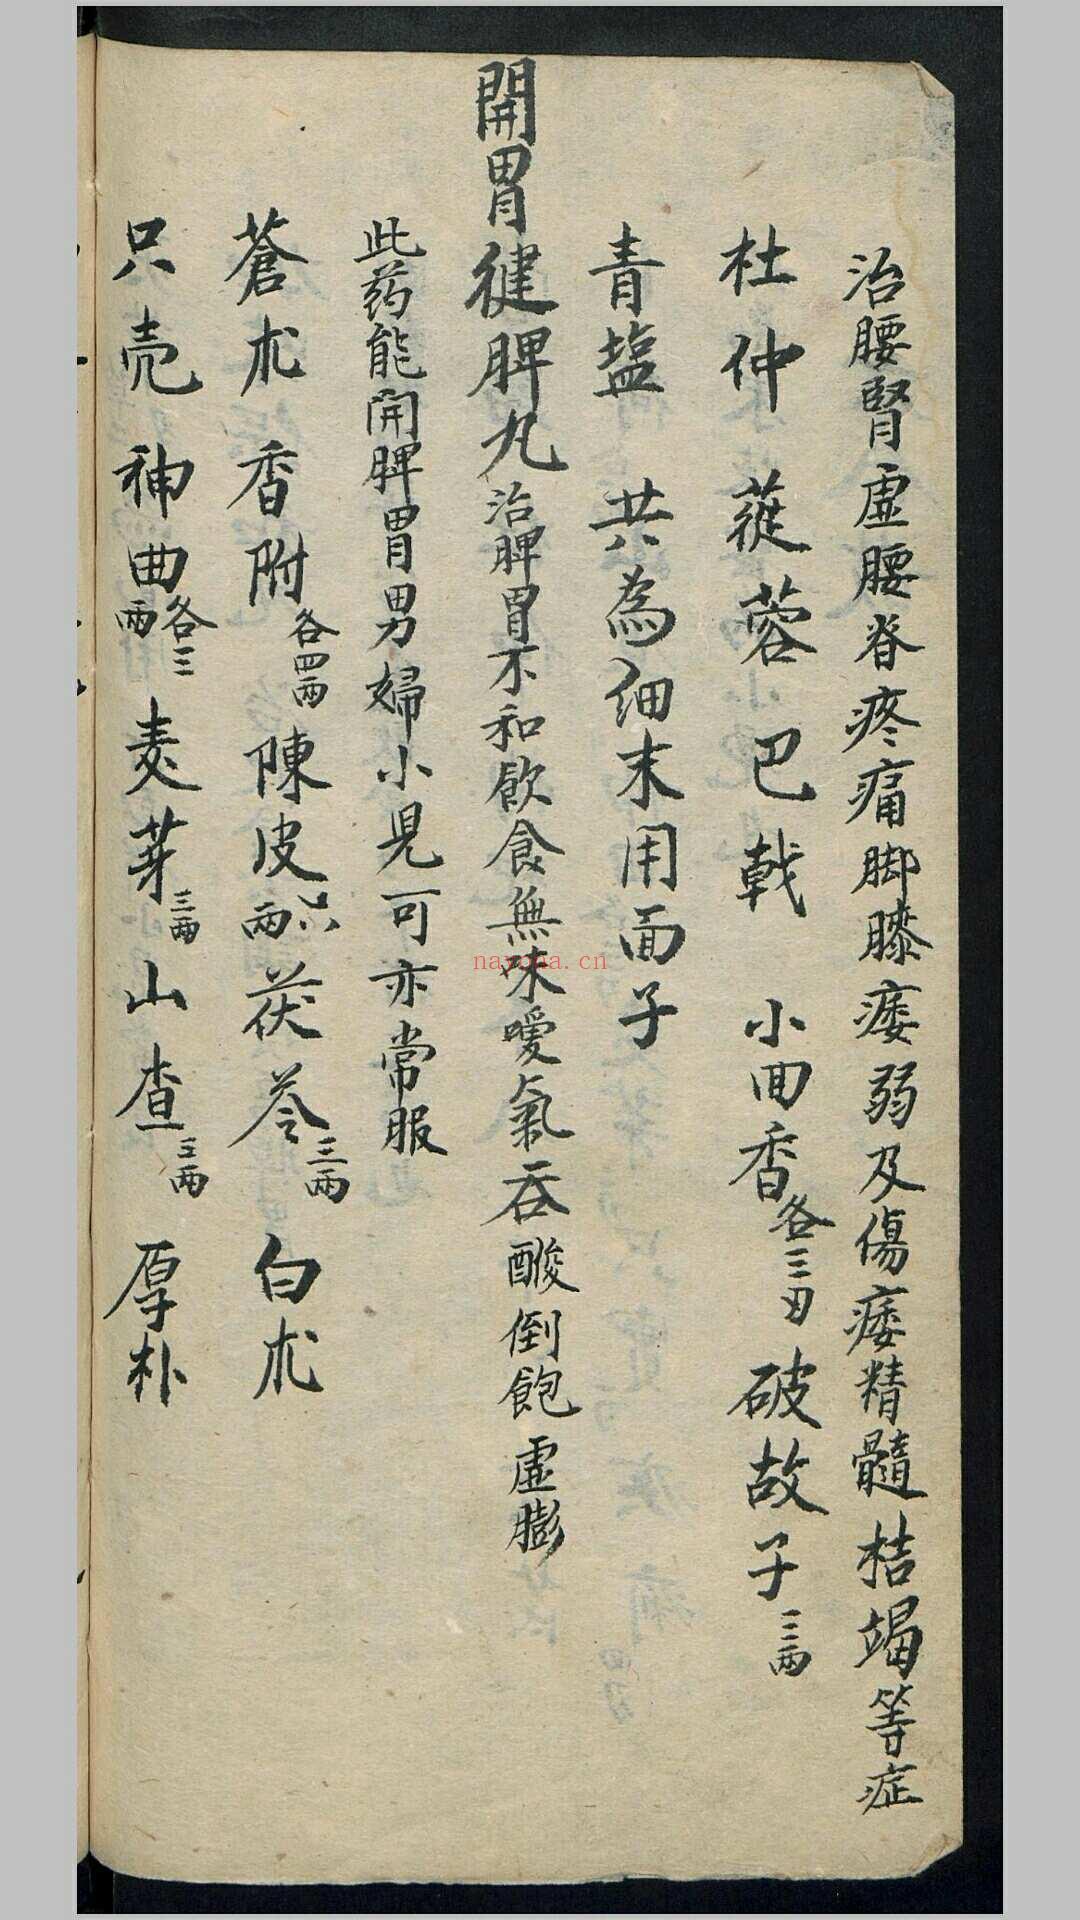 治腰腎虛腰腰脊疼痛脚膝痿弱及傷痿精髓桔竭等症
杜仲 蓯蓉 巴戟 小囬香各三刄 破故子三两
青塩 共為细末用面子
開胃健脾丸 治脾胃不和飲食無味噯氣吞酸倒飽虛膨
此药能開脾胃男婦小児可亦常服
蒼朮 香附各四两 陳皮只两 茯苓三两 白朮
只壳 神曲各三两 麦芽三两 山查三两 厚朴
nayona.cn